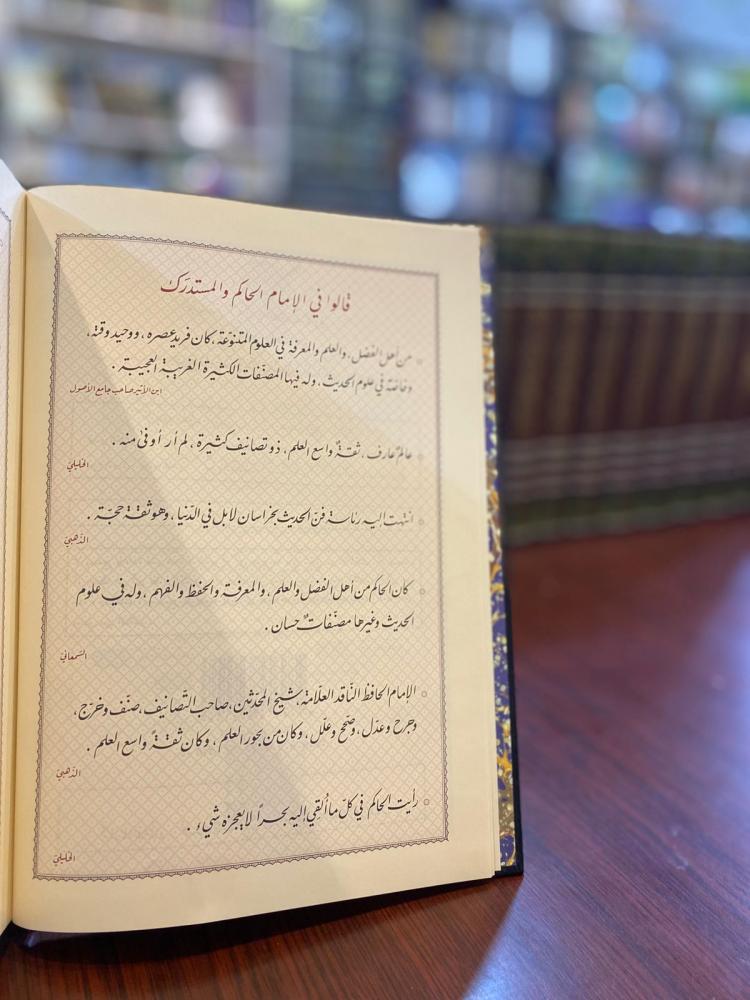 قالوا في الإمام الحاكم والمستدرك
من أهل الفضل، والعلم والمعرفة في العلوم المتنوّعة، كان فريد عصره، ووحيد وقته،
وخاصّةً في علوم الحديث، وله فيها المصنّفات الكثيرة الغريبة العجيبة.
ابن الأثير صاحب جامع الأصول
عالمٌ عارف، ثقةٌ واسع العلم، ذو تصانيف كثيرة، لم أر أوفى منه.
الخليليّ
انتهت إليه رئاسة فنّ الحديث بخراسان لا بل في الدّنيا، وهو ثقة حجّة.
الذّهبيّ
كان الحاكم من أهل الفضل والعلم، والمعرفة والحفظ والفهم، وله في علوم
الحديث وغيرها مصنّفاتٌ حسان.
السّمعانيّ
الإمام الحافظ النّاقد العلّامة، شيخ المحدّثين، صاحب التّصانيف، صنّف وخرّج،
وجرح وعدّل، وصحّح وعلّل، وكان من بحور العلم، وكان ثقةً واسع العلم.
الذّهبيّ
رأيت الحاكم في كلّ ما أُلقي إليه بحراً لا يعجزه شيء.
الخليليّ